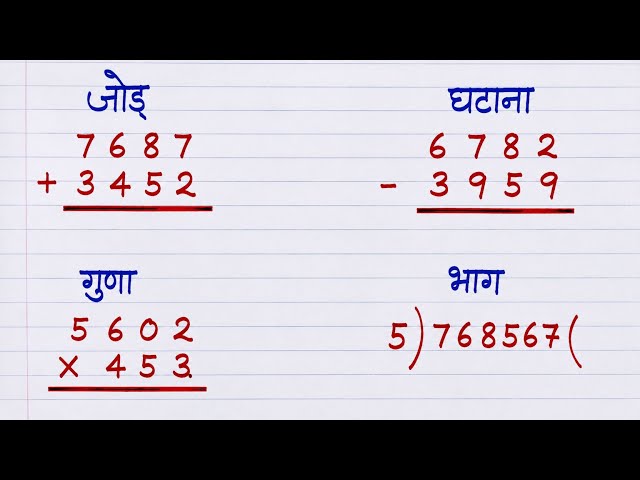 जोड़
7 6 8 7
+ 3 4 5 2
घटाना
6 7 8 2
- 3 9 5 9
गुणा
5 6 0 2
× 4 5 3
भाग
5)768567(